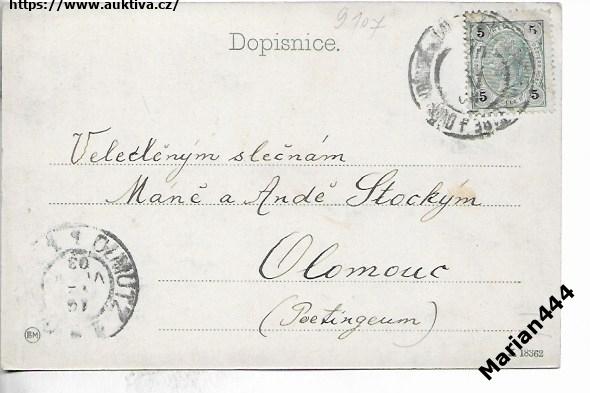 https://www.auktiva.cz/
9107
Dopisnice.
5 5
5 5
Velectěným slečnám
Mánč a Andě Stockým
Olomouc
(Poetingeum)
OLMÜTZ
03
BM
18362
Marian444